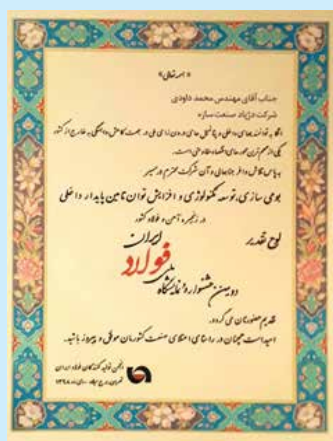 «بسمه تعالی»
جناب آقای مهندس محمد داودی
شرکت دژپاد صنعت سازه
اتکا به توانمندیهای داخلی و پتانسیل های درون زای ملی در جهت کاهش وابستگی به خارج از کشور
یکی از مهم ترین محورهای اقتصاد مقاومتی است.
به پاس تلاش وافر جنابعالی و آن شرکت محترم در مسیر
بومی سازی، توسعه تکنولوژی و افزایش توان تامین پایدار داخلی
در زنجیره آهن و فولاد کشور
لوح تقدیر
دومین جشنواره و نمایشگاه ملی
فولاد
ایران
تقدیم حضورتان می گردد.
امید است همچنان در راستای اعتلای صنعت کشورمان موفق و پیروز باشید.
انجمن تولید کنندگان فولاد ایران
تهران، برج میلاد، دی ماه ۱۳۹۸